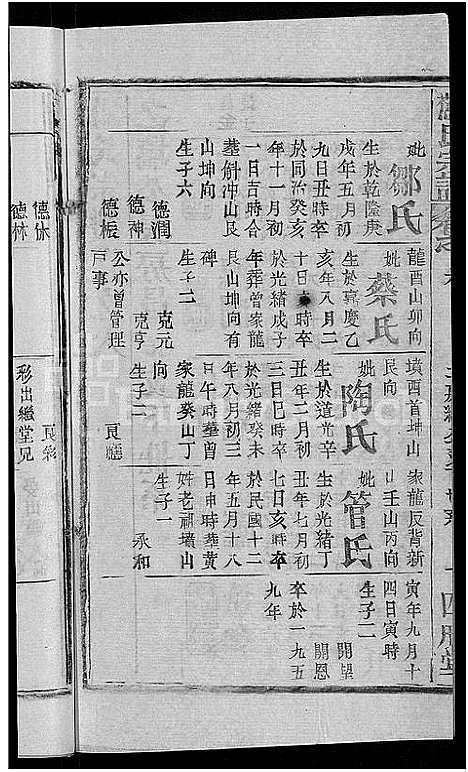 妣鄒氏
生於乾隆庚
戌年五月初
九日丑時卒
於同治癸亥
年十一月初
一日吉時合
葬斛沖山艮
山坤向
生子六
德潤
德神
德振
龍酉山卯向
妣蔡氏
生於嘉慶乙
亥年八月二
十日 時卒
於光緒戊子
年葬曾家龍
艮山坤向有
碑
生子二
克元
克亨
公亦曾管理
戸事
墳酉首坤山
艮向
妣陶氏
生於道光辛
丑年二月初
三日巳時卒
於光緒癸未
年八月初三
日午時葬曾
家龍癸山丁
向
生子二
良廳
家龍反背新
山壬山丙向
妣管氏
生於光緒丁
丑年七月初
七日亥時卒
於民國十二
年五月十八
日申時葬黄
姓老禰壙山
生子一
永和
寅年九月十
四日寅時
生子二
開望
開恩
卒於一九五
九年
德休
德林
良彩
彩出繼堂兄